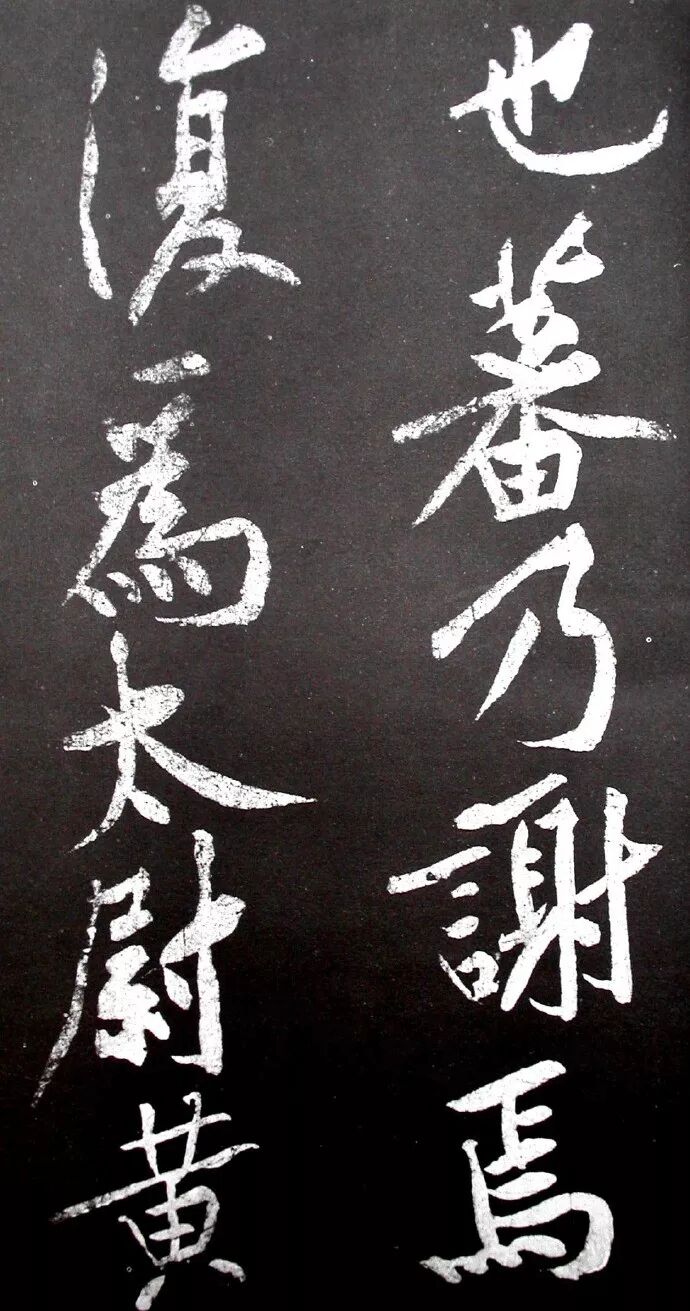 也蕃乃謝焉
復為太尉黄